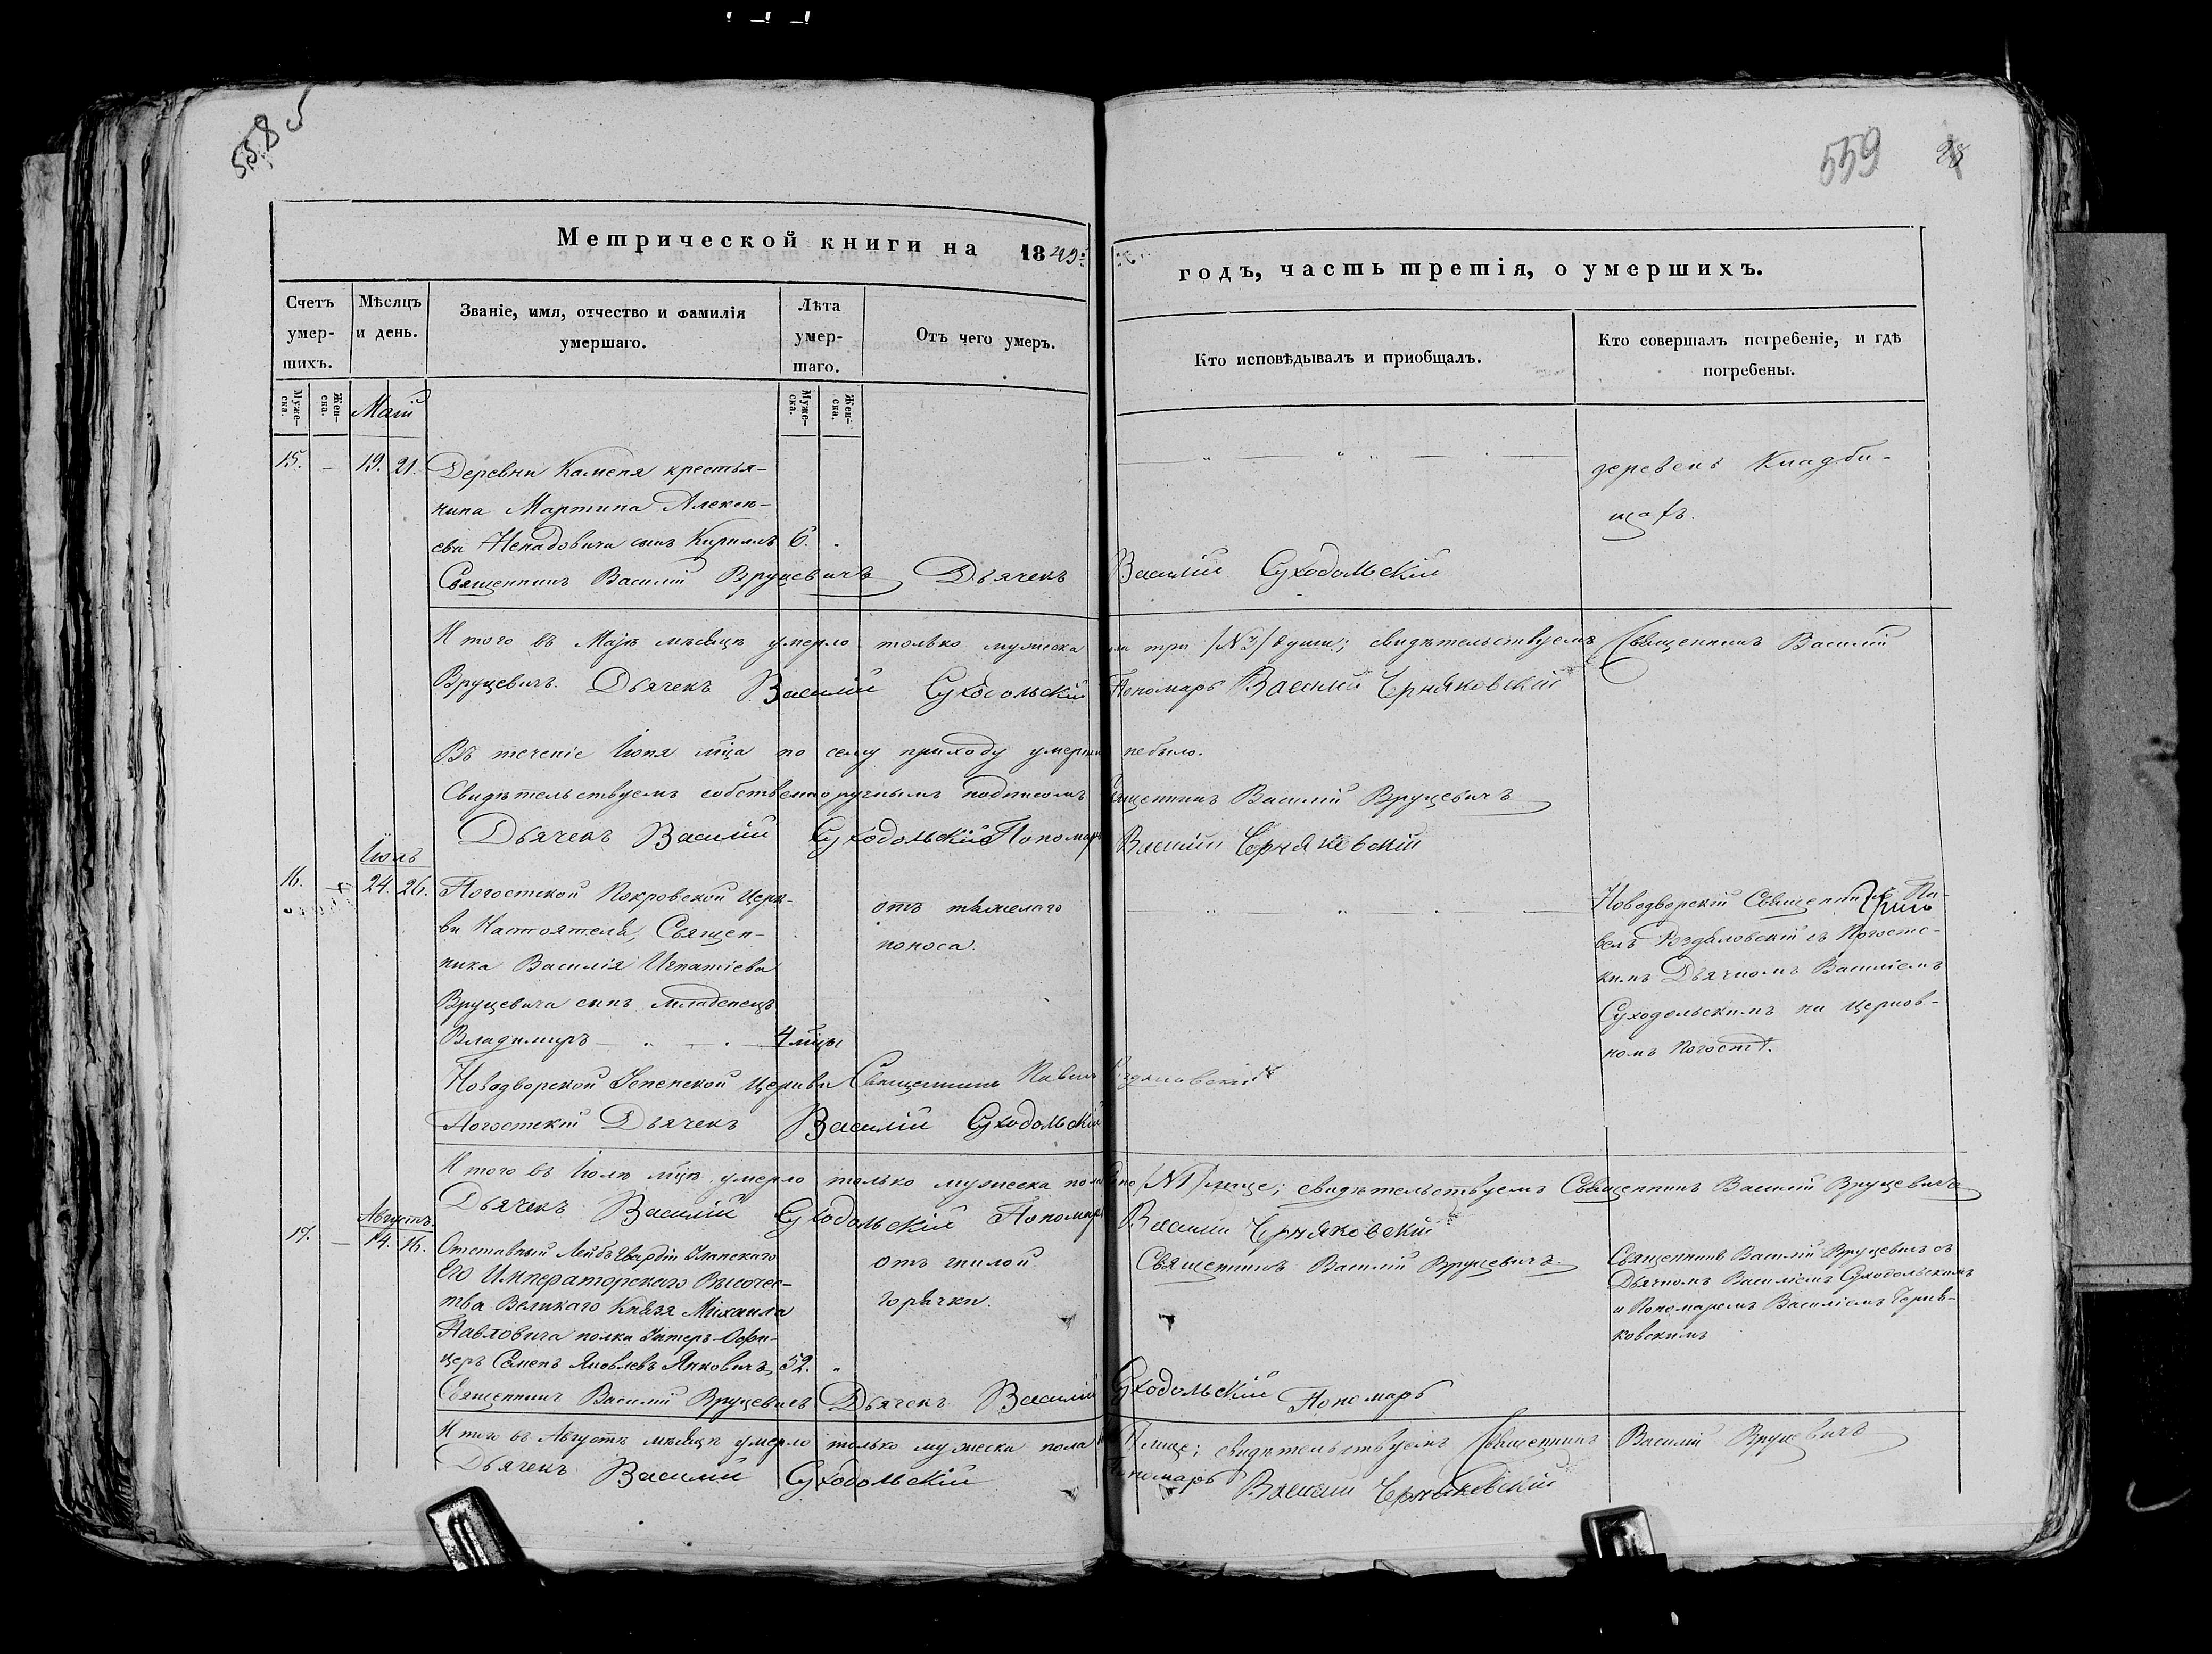 558
559
Метрической книги на 1849 годъ, часть третія, о умершихъ.
Счетъ умер-шихъ.
Мѣсяцъ и день.
Званіе, имя, отчество и фамилія умершаго.
Лѣта умер-шаго.
Отъ чего умеръ.
Кто исповѣдывалъ и приобщалъ.
Кто совершалъ погребеніе, и гдѣ погребены.
Муже-ска.
Жен-ска.
Муже-ска.
Жен-ска.
Маій
15. – 19. 21. Деревни Каменя крестья-
нина Мартина Алексѣ-
ева Ненадовича сынъ Кириллъ 6.
деревенѣ Кладби-
щахъ.
Священникъ Василій Вруцевичъ Дьячекъ Василій Суходольскій
Итого въ Маіѣ мѣсяцѣ умерло только мужеска три /№3/ души; свидѣтельствуемъ Священникъ Василій
Вруцевичъ. Дьячекъ Василій Суходольскій Пономарь Василій Черняковскій
Въ теченіе Іюня мца по сему приходу умершихъ небыло.
Свидѣтельствуемъ собственноручнымъ подписомъ Священникъ Василій Вруцевичъ
Дьячекъ Василій Суходольскій Пономарь Василій Черняковскій
Іюль
16. 24. 26. Погостской Покровской Церк-
ви Настоятеля, Священ-
ника Василія Игнатіева
Вруцевича сынъ младенецъ
Владимиръ 4 мцы
отъ тяжелаго
поноса.
Новодворскій Священникъ Па-
велъ с Погостс-
кимъ Дьячкомъ Василіемъ
Суходольскимъ на Церков-
номъ Погостѣ.
Новодворской Успенской Церкви Священникъ Павелъ
Погостскій Дьячекъ Василій Суходольскій
Итого въ Іюлѣ мцѣ умерло только мужеска пола /№1/ лице; свидѣтельствуемъ Священникъ Василій Вруцевичъ
Дьячекъ Василій Суходольскій Пономарь Василій Черняковскій
Августъ.
17. – 14. 16. Отставный Лейбъ Гвардіи Уланскаго
Его Императорскаго Высочес-
тва Великаго Князя Михаила
Павловича полка Унтеръ-Офи-
церъ Семенъ Яковлевъ Янковичъ 52.
отъ гнилой
горячки.
Священникъ Василій Вруцевичъ.
Священникъ Василій Вруцевичъ съ
Дьячкомъ Василіемъ Суходольскимъ
и Пономаремъ Василіемъ Черня-
ковскимъ
Священникъ Василій Вруцевичъ Дьячекъ Василій Суходольскій Пономарь
Итого въ Августѣ мѣсяцѣ умерло только мужеска пола лице; свидѣтельствуемъ Священникъ Василій Вруцевичъ
Дьячекъ Василій Суходольскій Пономарь Василій Черняковскій